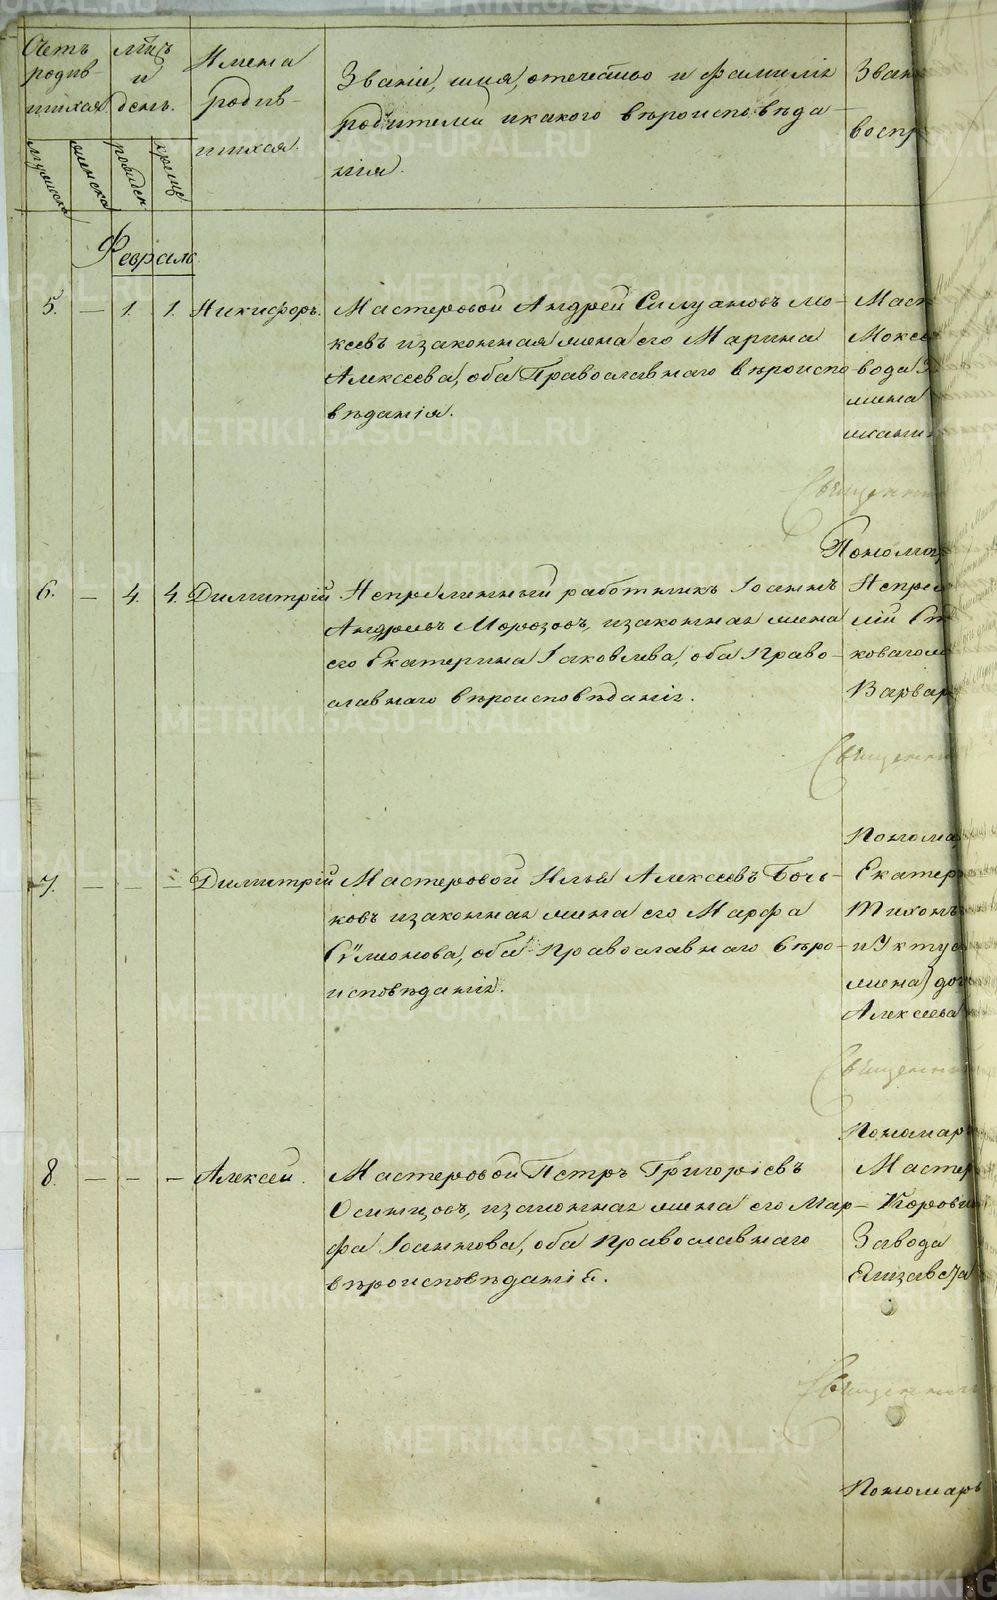 Счетъ родив- шихся.
мѣсяцъ и день.
Имена родив- шихся.
Званіе, имя, отечество и фамилія
родителей и какого вѣроисповѣда
нія.
Зван
воспр
мужеска
женска
рожден
крещ
Февраль.
5. — 1. 1. Никифоръ. Мастеровой Андрей Силуановъ Мо-
ксевъ изаконная жена его Марина
Алексеева, оба Православнаго вѣроиспо
вѣданія.
Маст
Моксе
вода
жена
Священни
Пономар
6. — 4. 4. Димитрій Непремѣнный работникъ Іоаннъ
Андреевъ Морозовъ, изаконная жена
его Екатерина Іаковлева, оба Право-
славнаго вѣроисповѣданія.
Непрем
коваго
Варвар
Священни
Понома
7. — — — Димитрій Мастеровой Илья Алексеевъ Бочь-
ковъ изаконная жена его Марфа
Сѵмеонова, оба Православнаго вѣро-
исповѣданія.
Екатер
Тихонъ
и Уктус
жена) доч
Алексеева
Священни
Пономар
8. — — — Алексей. Мастеровой Петръ Григоріевъ
Осинцовъ, изаконная жена его Мар-
фа Іоаннова, оба Православнаго
вѣроисповѣданія.
Мастер
Корови
Завода
Елизавета
Священни
Пономарь
METRIKI.GASO-URAL.RU